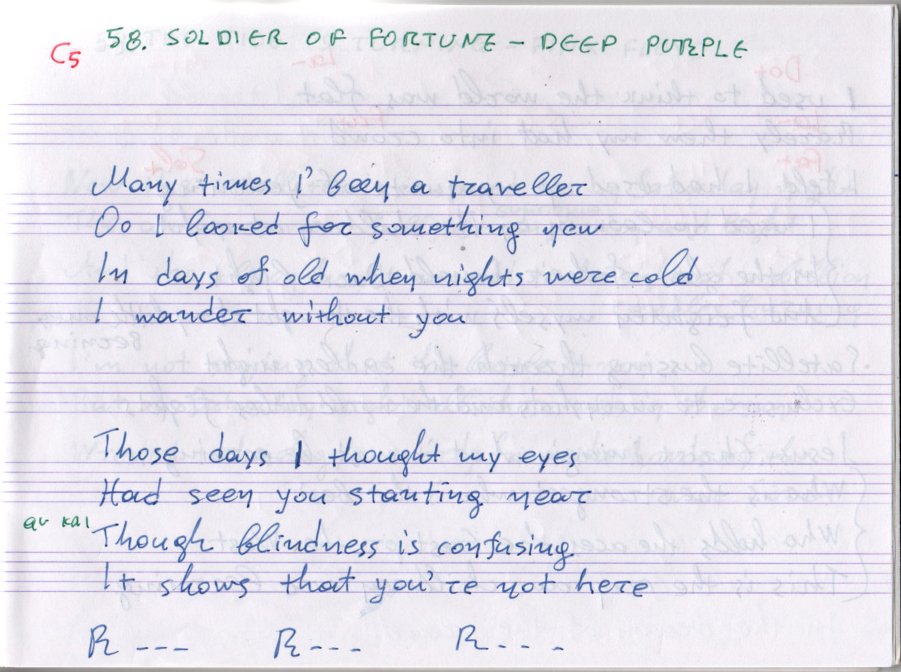 C5 58. SOLDIER OF FORTUNE – DEEP PURPLE
Many times I' been a traveller
Oo I looked for something new
In days of old when nights were cold
I wander without you
Those days I thought my eyes
Had seen you stanting near
αν και
Though blindness is confusing
It shows that you're not here
R --- R --- R ---